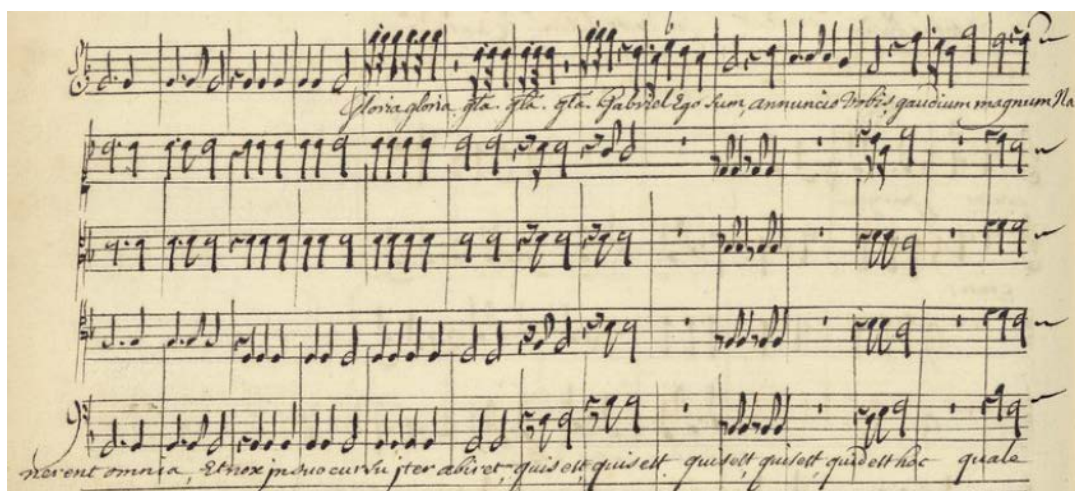 Gloria gloria gla. gla. gla. Gabriel Ego sum, annuncio vobis, gaudium magnum Na
nerent omnia, Et nox in suo cursu iter abiret, quis est, quis est quis est, quis est, quid est hoc quale